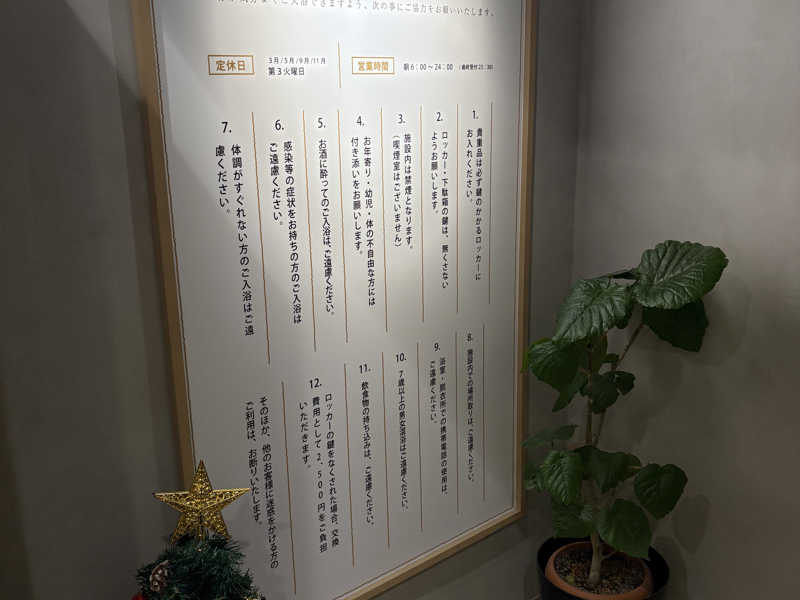 ご入浴できますよう、次の事にご協力をお願いいたします。
定休日
3月/5月/9月/11月
第3火曜日
営業時間
朝6:00〜24:00 (最終受付23:30)
1.
貴重品は必ず鍵のかかるロッカーに
お入れください。
2.
ロッカー・下駄箱の鍵は、無くさない
ようお願いします。
3.
施設内は禁煙となります。
(喫煙室はございません)
4.
お年寄り・幼児・体の不自由な方には
付き添いをお願いします。
5.
お酒に酔ってのご入浴は、ご遠慮ください。
6.
感染等の症状をお持ちの方のご入浴は
ご遠慮ください。
7.
体調がすぐれない方のご入浴はご遠
慮ください。
8.
施設内での場所取りは、ご遠慮ください。
9.
浴室・脱衣所での携帯電話の使用は、
ご遠慮ください。
10.
7歳以上の男女混浴はご遠慮ください。
11.
飲食物の持ち込みは、ご遠慮ください。
12.
ロッカーの鍵をなくされた場合、交換
費用として2,500円をご負担
いただきます。
そのほか、他のお客様に迷惑をかける方の
ご利用は、お断りいたします。